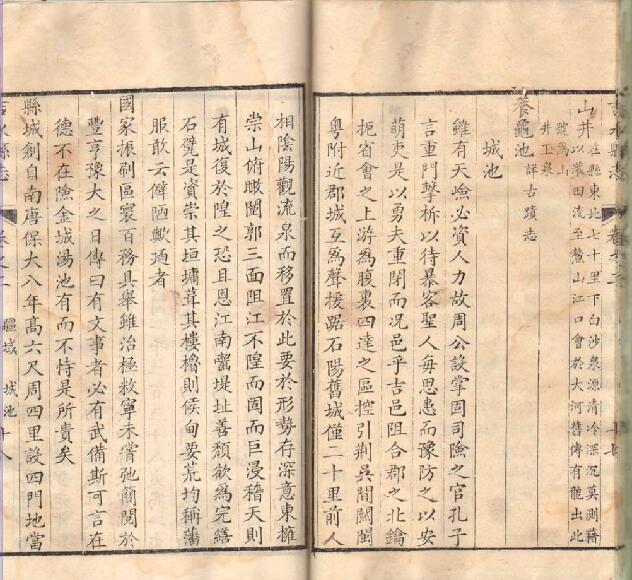 吉水縣志 卷之二
山井 在縣東北七十里下白沙泉源清冷深沉莫測藉
以灌田流至鰲山江口會於大河舊傳有龍出此
號為山
井玉泉
養龜池 詳古蹟志
城池
雖有天嶮必資人力故周公設掌固司險之官孔子
言重門擊柝以待暴客聖人每思患而豫防之以安
萌吏是以勇夫重閉而况邑乎吉邑阻合郡之北鑰
扼省會之上游為腹裏四達之區控引荆吳間闗閩
粵附近郡城互為聲援踞石陽舊城僅二十里前人
相陰陽觀流泉而移置於此要於形勢存深意東擁
崇山俯瞰闤郭三面阻江不隍而固而巨浸稽天則
有城復於隍之恐且恩江南齧堤址善頹欲為完繕
石甓是資崇其垣墉葺其樓櫓則侯甸要荒均稱藩
服敢云僻陋歟邇者
國家振刷區寰百務具舉雖治極敉寧未嘗弛簡閱於
豐亨豫大之日傳曰有文事者必有武備斯可言在
德不在險金城湯池有而不恃是所貴矣
縣城創自南唐保大八年高六尺周四里設四門地當
吉水縣志 卷之二 疆域 城池 十八